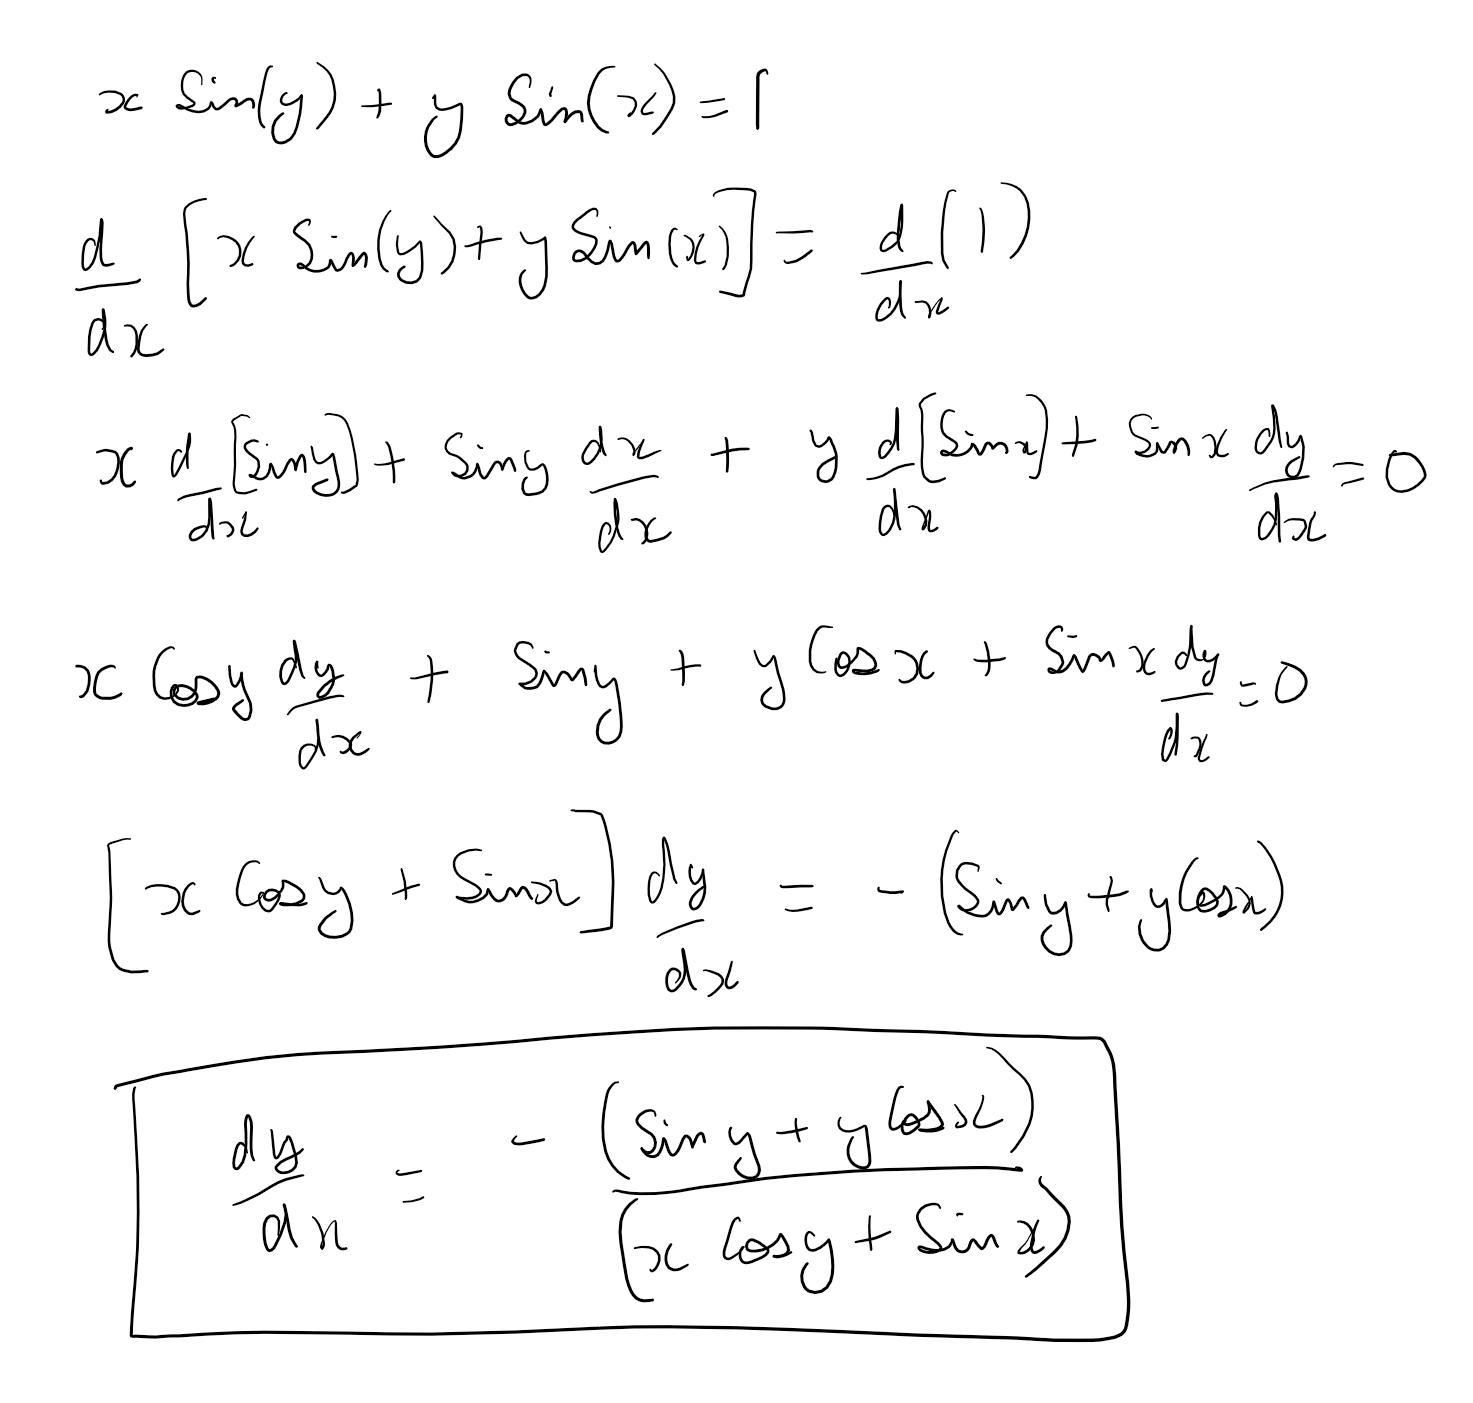 x Sin(y) + y Sin(x) = 1
d/dx [x Sin(y) + y Sin(x)] = d/dx (1)
x d/dx [Siny] + Siny dx/dx + y d/dx [Sinx] + Sinx dy/dx = 0
x Cosy dy/dx + Siny + y Cosx + Sinx dy/dx = 0
[x Cosy + Sinx] dy/dx = - (Siny + y Cosx)
dy/dx = - (Siny + y Cosx)/(x Cosy + Sinx)